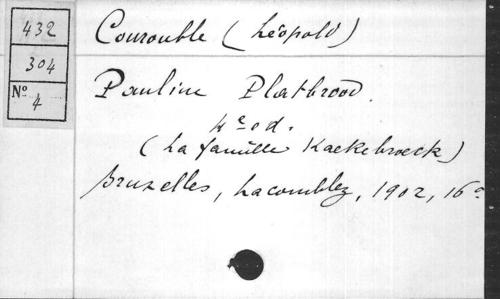 432
304
Nº 4
Courouble (Léopold)
Pauline Platbrood.
4e éd.
(La famille Kaekebroeck)
Bruxelles, Lacomblez, 1902, 16º